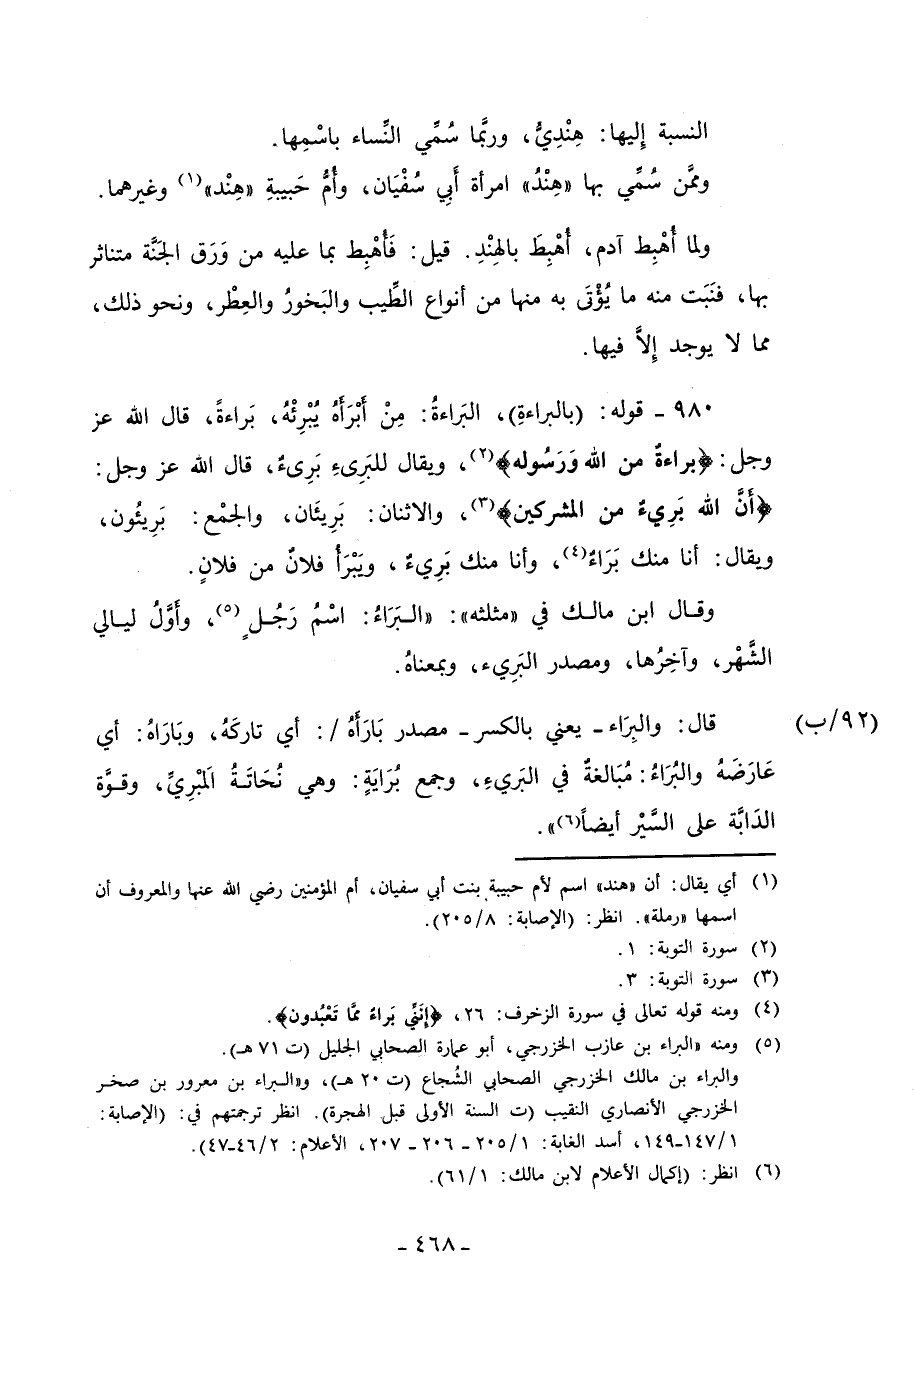 النسبة إليها: هِنْدِيُّ، وربَّما سُمِّي النِّساء باسْمِها.
وممَّن سُمِّي بها «هِنْدُ» امرأة أَبِي سُفْيَان، وأُمُّ حَبيبةِ «هِنْد»(١) وغيرهما.
ولما أُهْبِط آدم، أُهْبِطَ بالهِنْدِ. قيل: فَأُهْبِط بما عليه من وَرَق الجَنَّة متناثر
بها، فنَبَت منه ما يُؤْتَى به منها من أنواع الطِّيب والبَخورُ والعِطْر، ونحو ذلك،
مما لا يوجد إِلاَّ فيها.
٩٨٠ - قوله: (بالبراءةِ)، البَراءةُ: مِنْ أَبْرَأَهُ يُبْرِئْهُ، بَراءةً، قال الله عز
وجل: ﴿براءةٌ من الله وَرَسُوله﴾(٢)، ويقال للبَرِيءِ بَرِيءٌ، قال الله عز وجل:
﴿أَنَّ الله بَرِيءٌ من المشركين﴾(٣)، والاثنان: بَرِيئَان، والجمْع: بَرِيئُون،
ويقال: أنا منك بَرَاءٌ(٤)، وأنا منك بَرِيءٌ ، ويَبْرَأُ فلانٌ من فلانٍ.
وقـال ابن مالـك في «مثلثه»: «الـبَرَاءُ: اسْمُ رَجُـلٍ(٥)، وأَوَّلُ ليـالي
الشَّهْر، وآخِرُها، ومصدر البَرِيء، وبمعناهُ.
قال: والبِرَاء - يعني بالكسر - مصدر بَارَأَهُ /: أي تاركَهُ، وبَارَاهُ: أي (٩٢/ب)
عَارَضَهُ والبُرَاءُ: مُبَالغةٌ في البَريءِ، وجمع بُرَايَةٍ: وهي نُحَاتَـةُ المَبْرِيِّ، وقـوَّة
الدَابَّة على السَّيْر أيضاً(٦)».
(١) أي يقال: أن «هند» اسم لأم حبيبة بنت أبي سفيان، أم المؤمنين رضي الله عنها والمعروف أن
اسمها «رملة». انظر: (الإصابة: ٢٠٥/٨).
(٢) سورة التوبة: ١.
(٣) سورة التوبة: ٣.
(٤) ومنه قوله تعالى في سورة الزخرف: ٢٦، ﴿إِنَنِّي بَراءٌ ممَّا تَعْبُدون﴾.
(٥) ومنه «البراء بن عازب الخزرجي، أبو عمارة الصحابي الجليل (ت ٧١ هـ).
والبراء بن مالك الخزرجي الصحابي الشُجاع (ت ٢٠ هـ)، و«الـبراء بن معرور بن صخـر
الخزرجي الأنصاري النقيب (ت السنة الأولى قبل الهجرة). انظر ترجمتهم في: (الإصابة:
١٤٧/١-١٤٩، أسد الغابة: ٢٠٥/١ - ٢٠٦ - ٢٠٧، الأعلام: ٤٦/٢-٤٧).
(٦) انظر: (إكمال الأعلام لابن مالك: ٦١/١).
- ٤٦٨ -